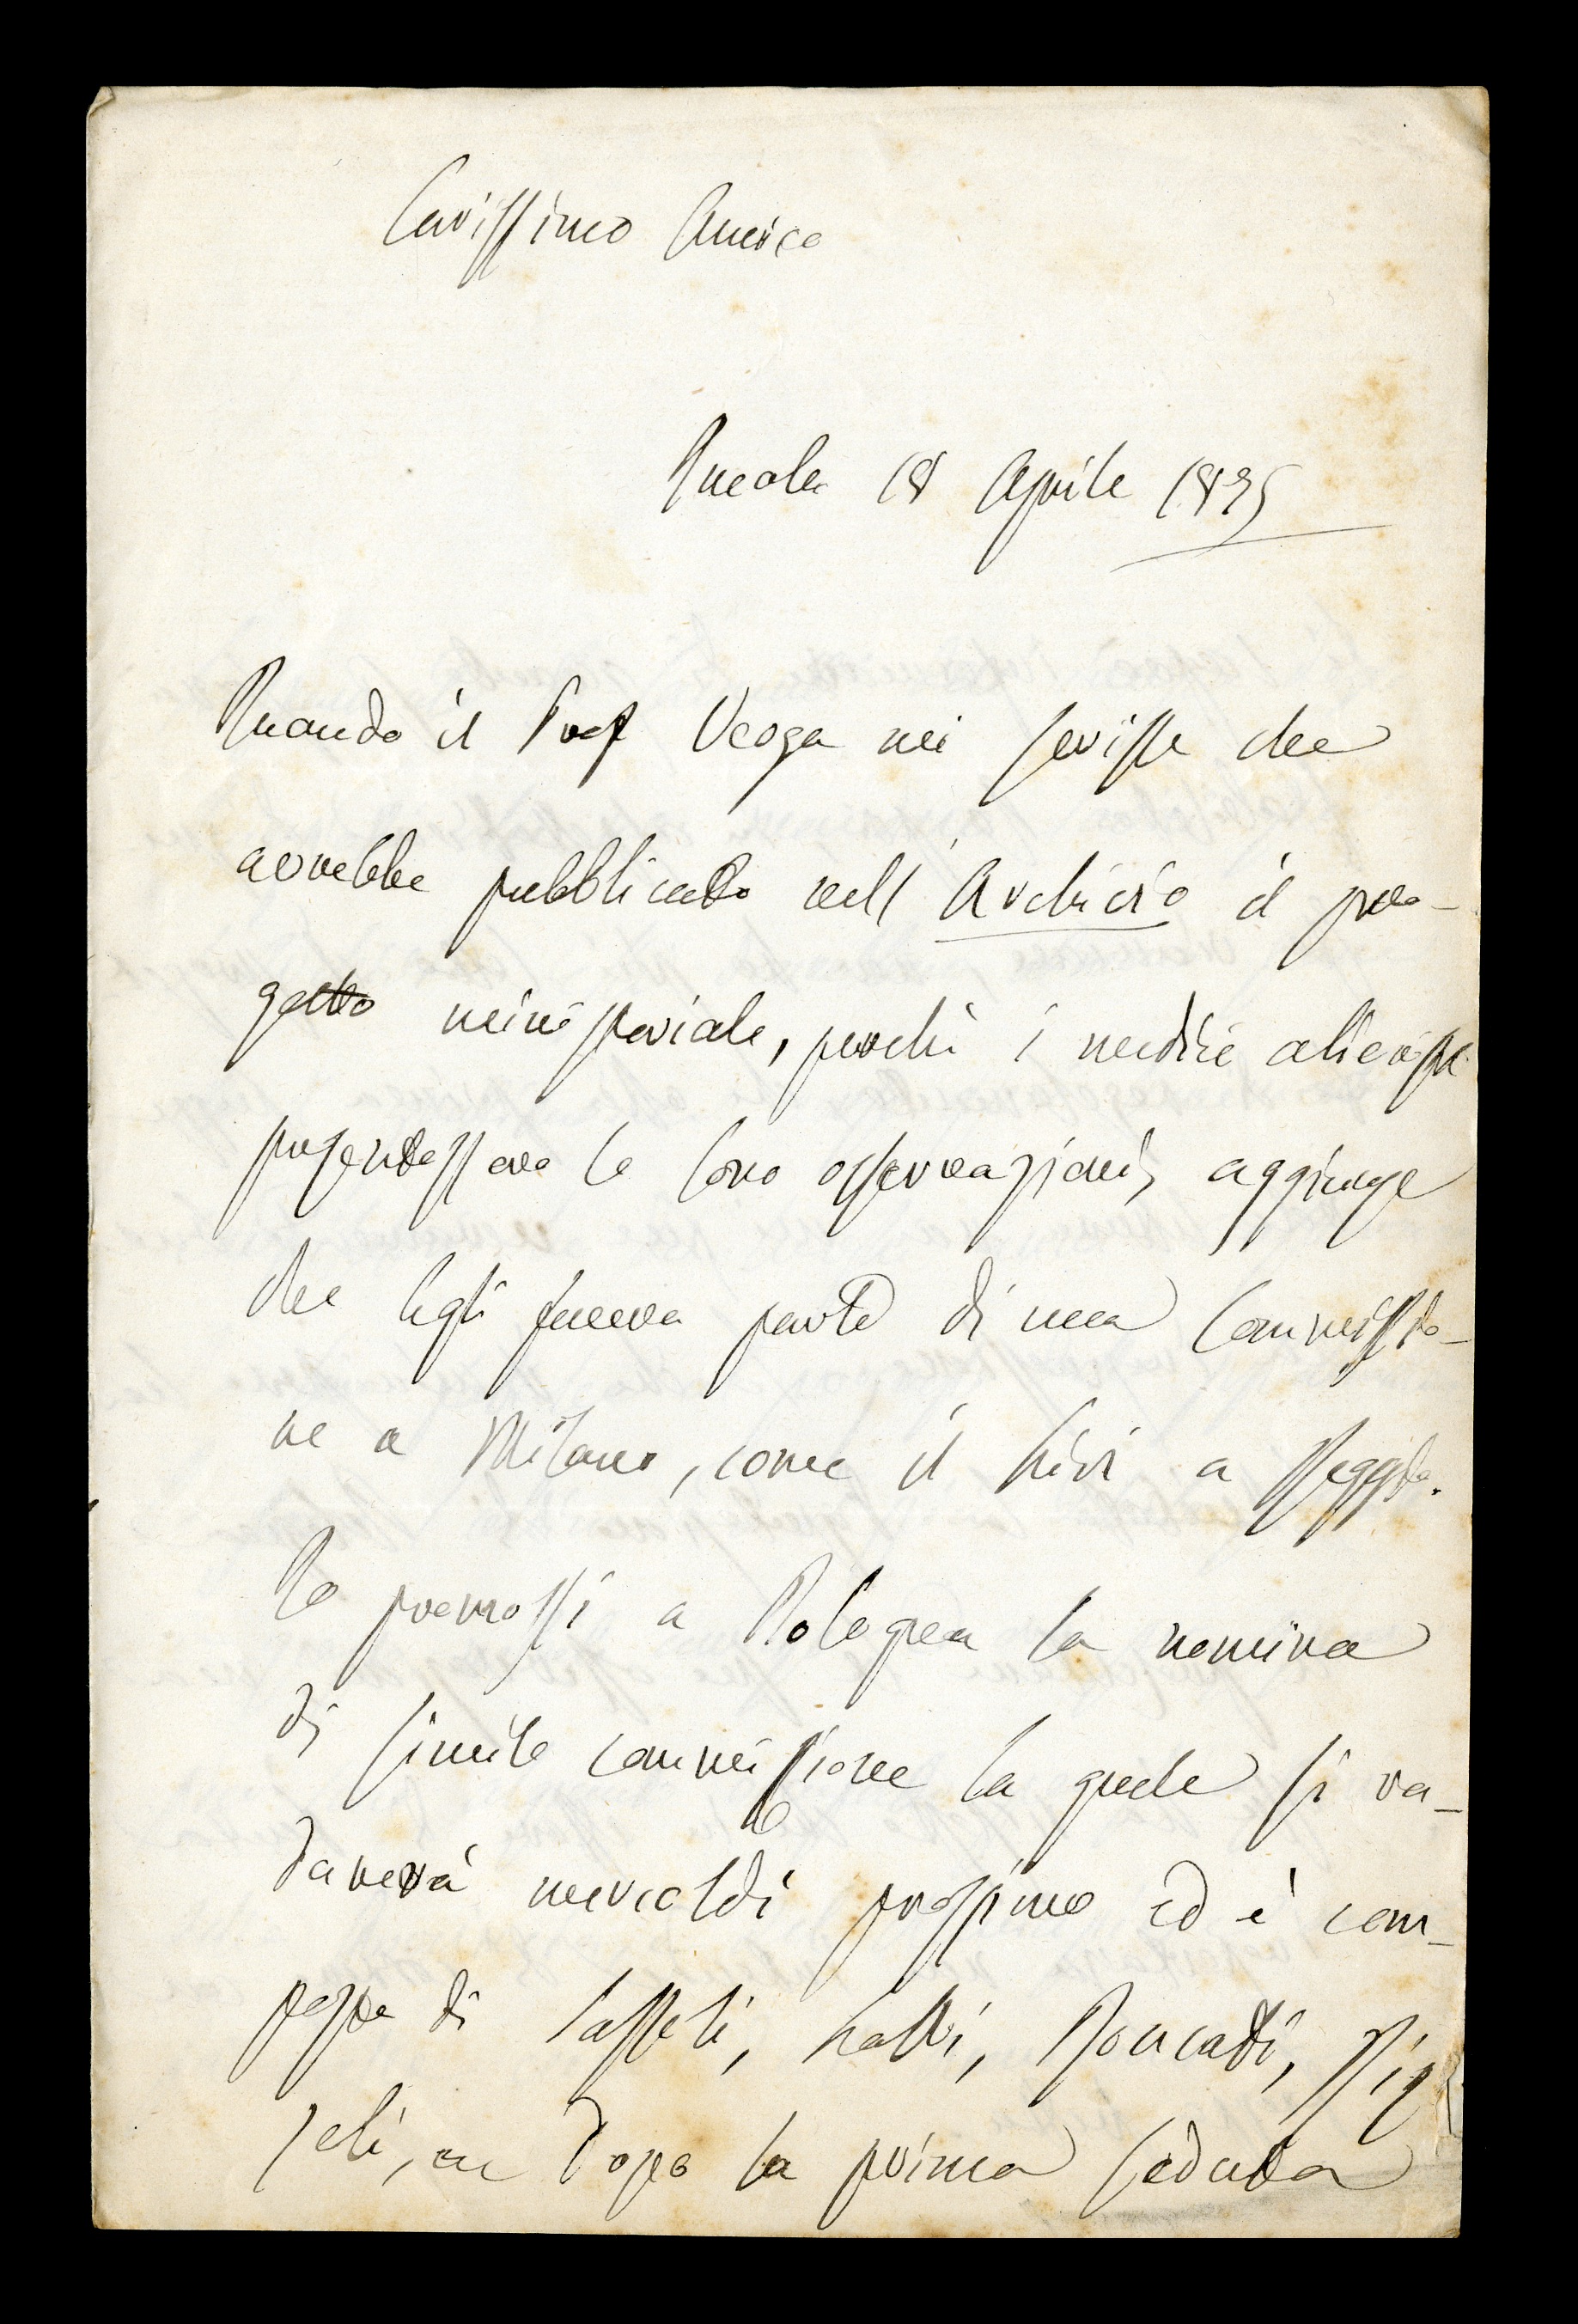 Carissimo Amico
Imola 18 Aprile 1895
Quando il Prof Verga mi scrisse che
avrebbe pubblicato nell'Archivio il pro-
getto ministeriale, perchè i medici alienisti
presentassero le loro osservazioni, aggiunge
che Egli faceva parte di una Commissio-
ne a Milano, come il Livi a Reggio.
Io promossi a Bologna la nomina
di simile commissione la quale si ra-
dunerà mercoldì prossimo ed è com-
posta di Tassoli, Gatti, Roncati,
la prima seduta